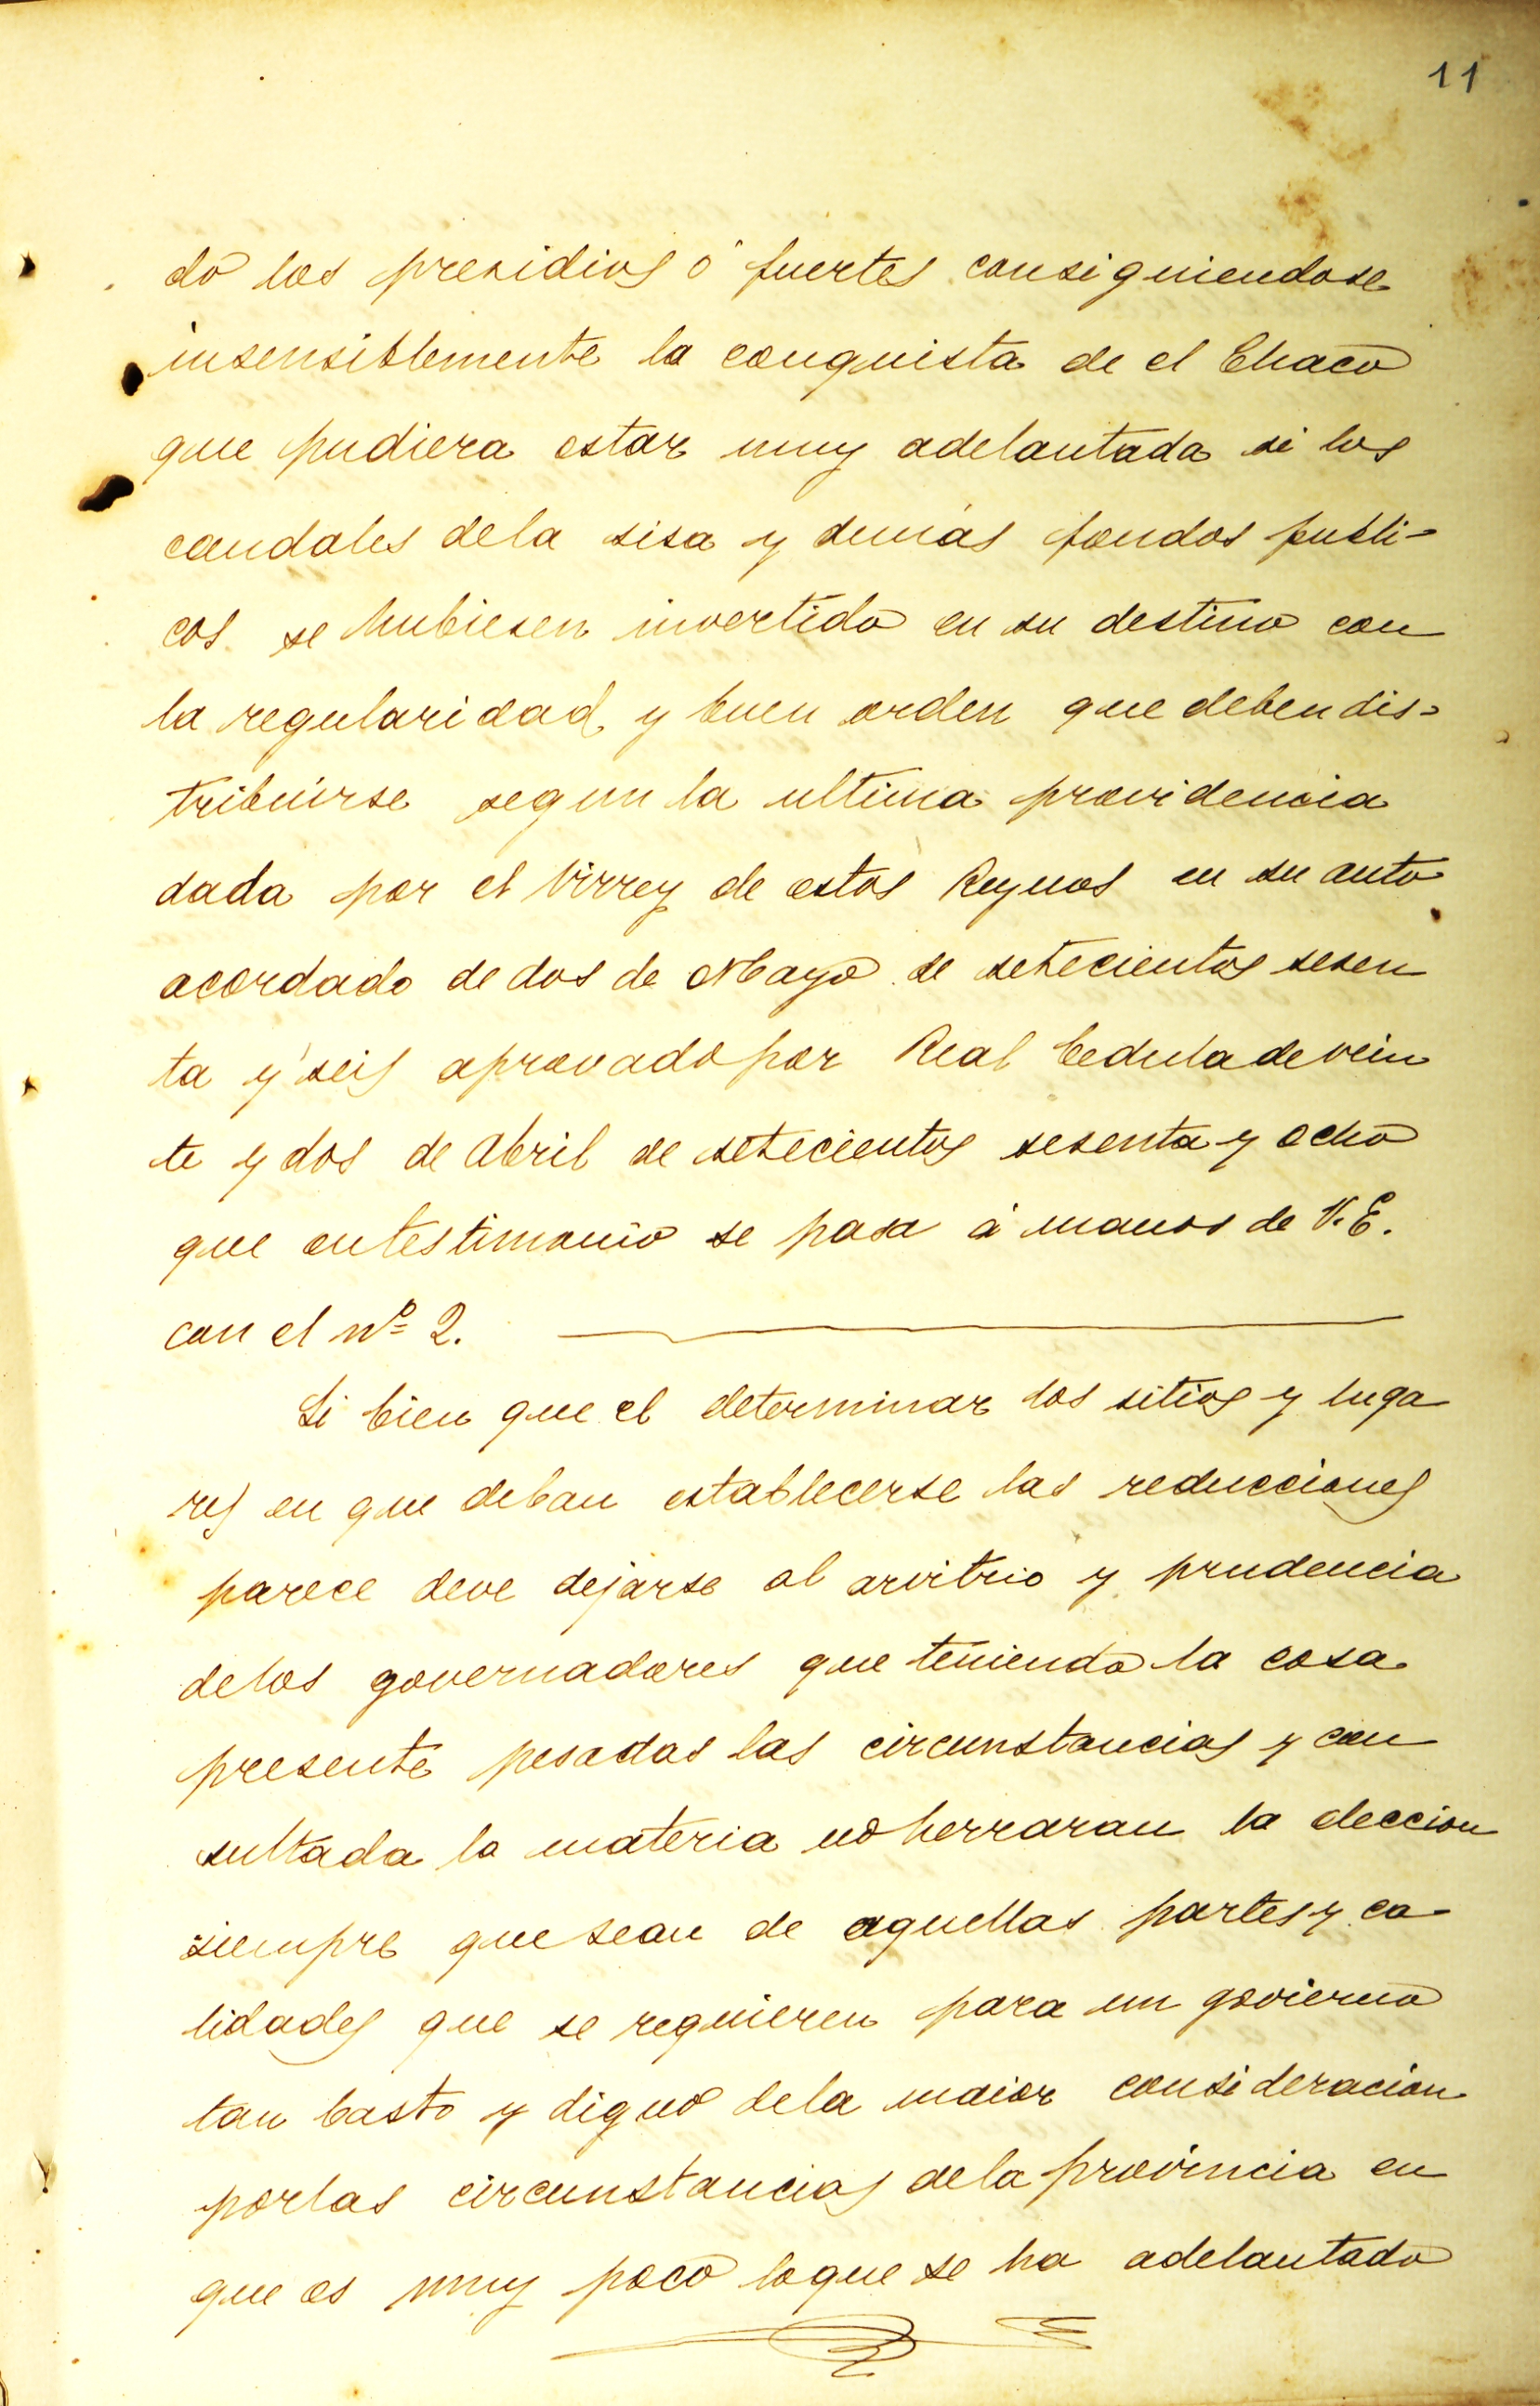 11
do los presidios ó fuertes consiguiendose
insensiblemente la conquista de el Chaco
que pudiera estar muy adelantada si los
caudales dela sisa y demás fondos publi-
cos se hubiesen invertido en su destino con
la regularidad y buen orden que deben dis=
tribuirse segun la ultima providencia
dada por el Virrey de estos Reynos en su auto
acordado de dos de Mayo de setecientos sesen
ta y seis aprovado por Real Cedula de vein
te y dos de Abril de setecientos sesenta y ocho
que entestimonio se pasa á manos de V.E.
con el nº 2.
Si bien que el determinar los sitios y luga
res en que deban establecerse las reducciones
parece deve dejarse al arvitrio y prudencia
delos governadores que teniendo la cosa
presente pesadas las circunstancias y con
sultada la materia no herraran la eleccion
siempre que sean de aquellas partes y ca
lidades que se requieren para un govierno
tan basto y digno dela maior consideracion
porlas circunstancias dela provincia en
que es muy poco loque se ha adelantado